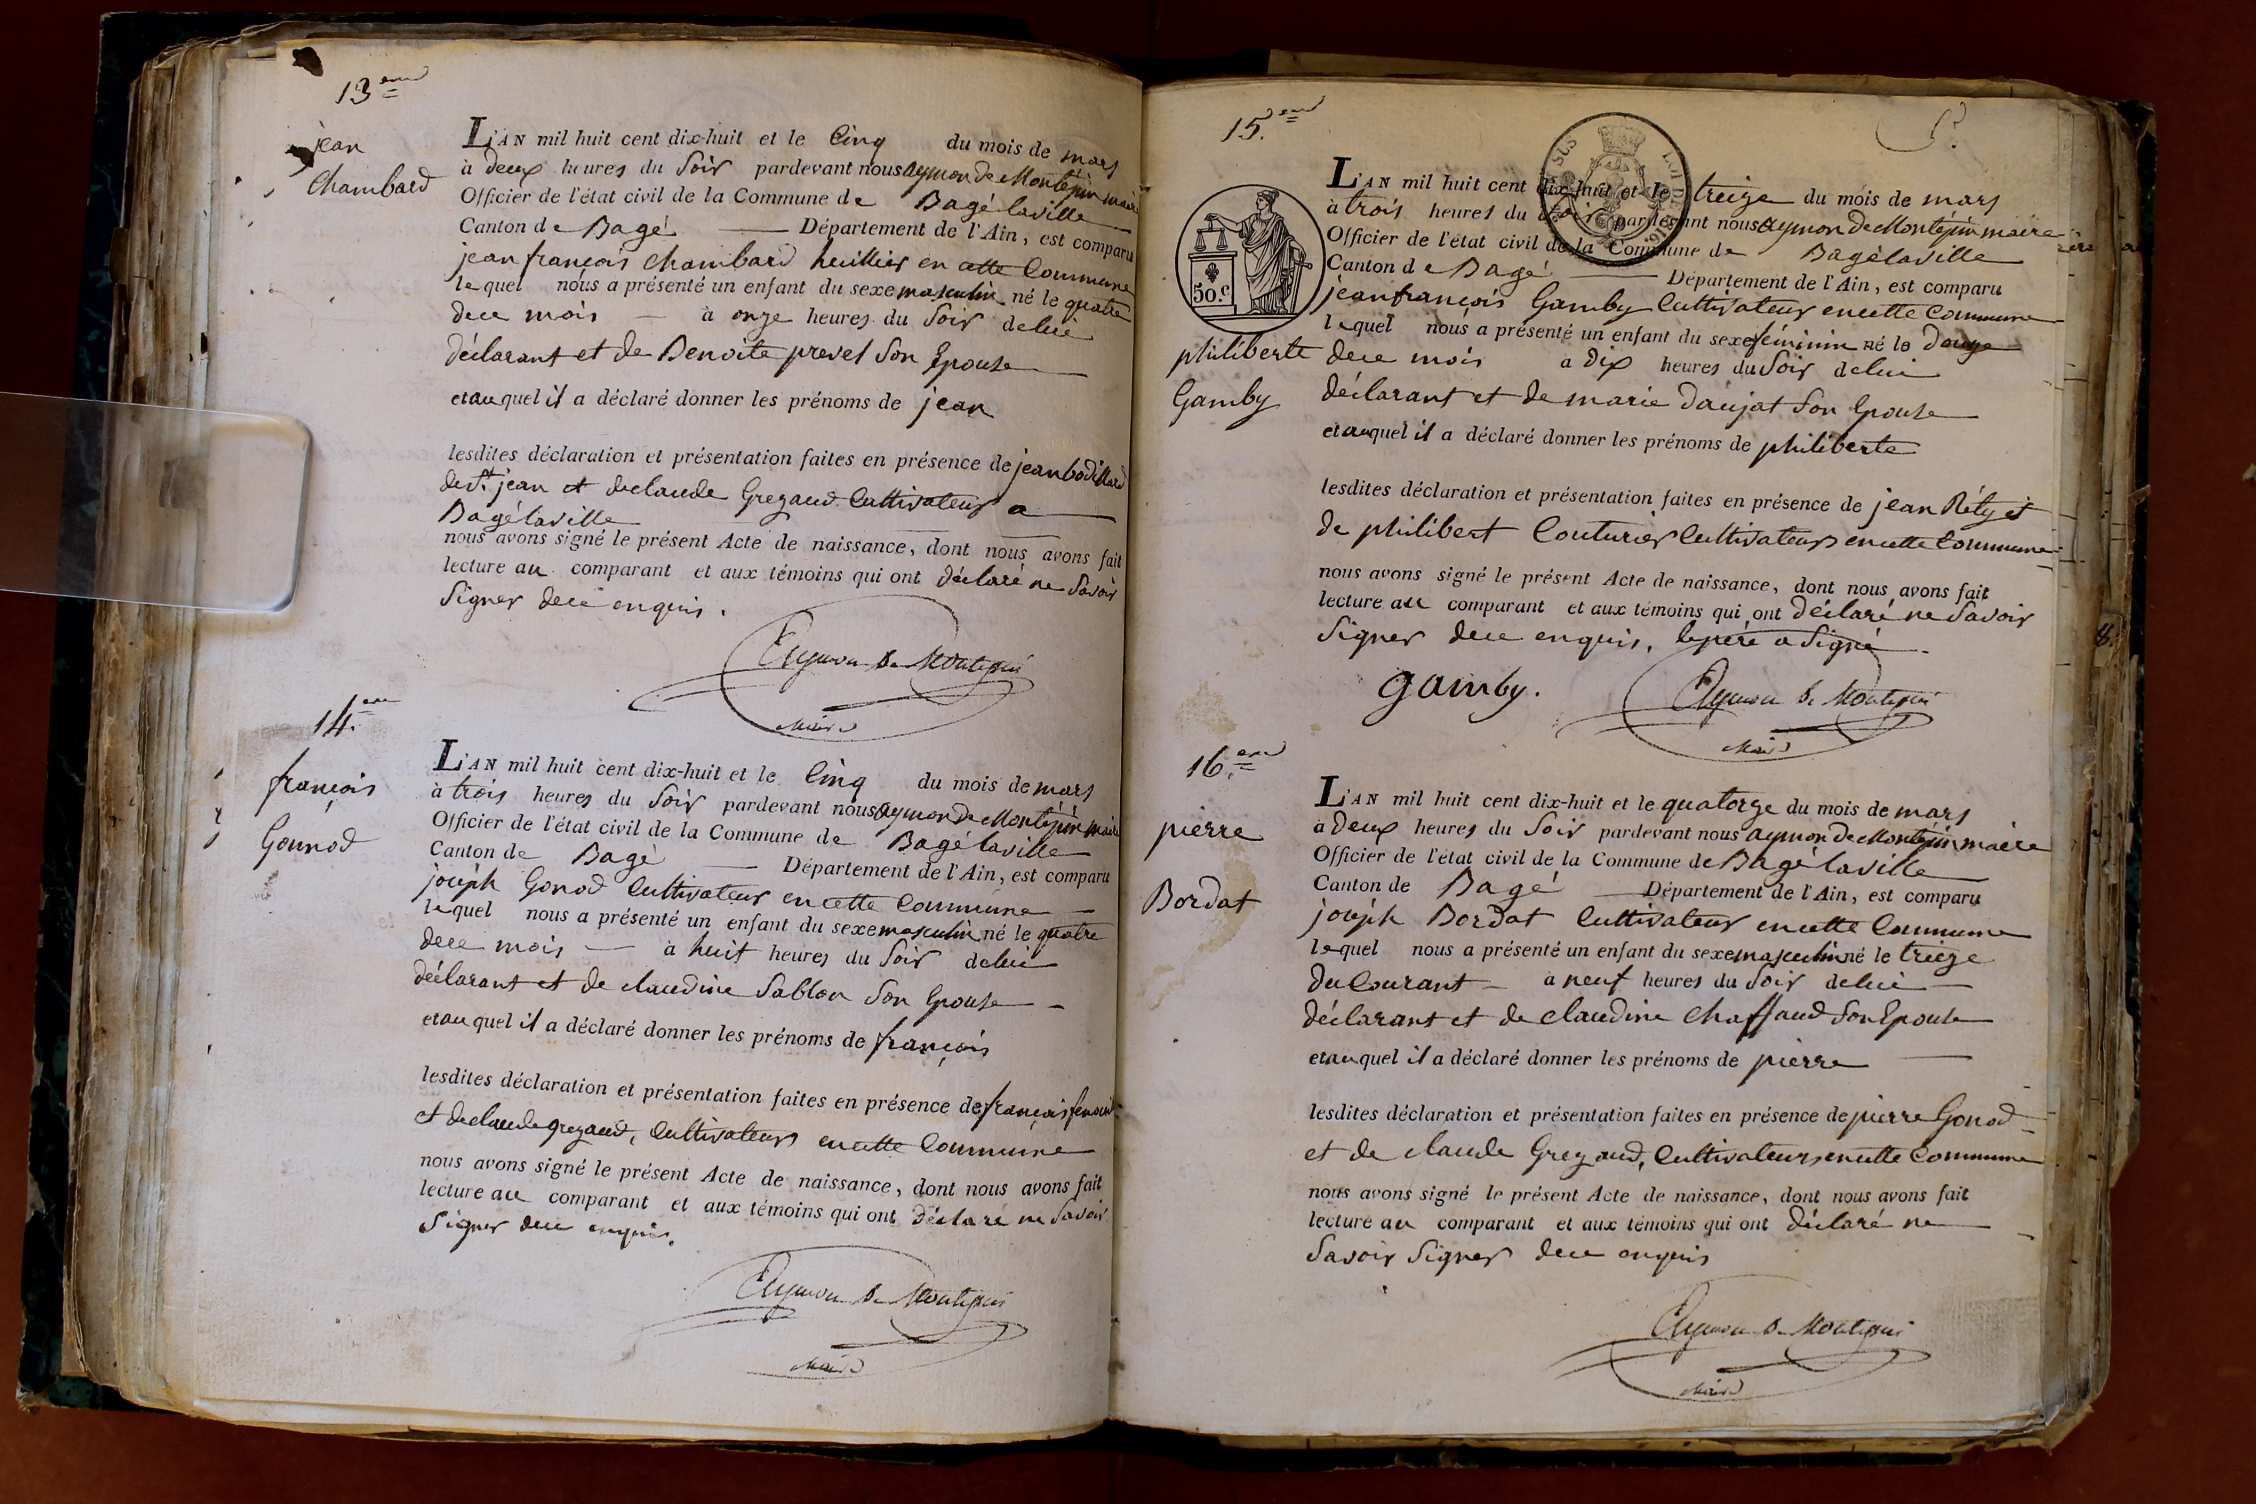 13.eme
jean
Chambard
L'AN mil huit cent dix-huit et le Cinq du mois de mars
à deux heures du Soir pardevant nous aymon de Montépin maire
Officier de l'état civil de la Commune de Bagé laville
Canton de Bagé Département de l'Ain, est comparu
jean françois Chambard huillier en cette Commune
lequel nous a présenté un enfant du sexe masculin né le quatre
dece mois à onze heures du Soir delui
déclarant et de Benoite prevel Son Epouse
et auquel il a déclaré donner les prénoms de jean
lesdites déclaration et présentation faites en présence de jean bodillard
de St. jean et declaude Gregaud Cultivateurs a
Bagélaville
nous avons signé le présent Acte de naissance, dont nous avons fait
lecture au comparant et aux témoins qui ont déclaré ne Savoir
Signer dece enquis.
Aymon De Montepin
Maire
14.eme
françois
Gounod
L'AN mil huit cent dix-huit et le Cinq du mois de mars
à trois heures du Soir pardevant nous aymon de Montépin maire
Officier de l'état civil de la Commune de Bagé laville
Canton de Bagé Département de l'Ain, est comparu
joseph Gonod Cultivateur en cette Commune
lequel nous a présenté un enfant du sexe masculin né le quatre
dece mois à huit heures du Soir delui
déclarant et de claudine Sablon Son Epouse
et auquel il a déclaré donner les prénoms de françois
lesdites déclaration et présentation faites en présence de françois
et declaude gregaud, Cultivateurs en cette Commune
nous avons signé le présent Acte de naissance, dont nous avons fait
lecture au comparant et aux témoins qui ont déclaré ne Savoir
Signer dece enquis.
Aymon De Montepin
Maire
15.eme
50.c
philiberte
Gamby
L'AN mil huit cent dix-huit et le treize du mois de mars
à trois heures du Soir pardevant nous aymon de Montépin maire
Officier de l'état civil de la Commune de Bagélaville
Canton de Bagé Département de l'Ain, est comparu
jean françois Gamby Cultivateur en cette Commune
lequel nous a présenté un enfant du sexe féminin né le douze
dece mois a dix heures du Soir delui
déclarant et de marie daujat Son Epouse
et auquel il a déclaré donner les prénoms de philiberte
lesdites déclaration et présentation faites en présence de jean Réty et
de philibert Couturier Cultivateurs en cette Commune
nous avons signé le présent Acte de naissance, dont nous avons fait
lecture au comparant et aux témoins qui ont déclaré ne Savoir
Signer dece enquis, le père a Signé
gamby.
Aymon De Montepin
Maire
16.eme
pierre
Bordat
L'AN mil huit cent dix-huit et le quatorze du mois de mars
à deux heures du Soir pardevant nous aymon de Montépin maire
Officier de l'état civil de la Commune de Bagé laville
Canton de Bagé Département de l'Ain, est comparu
joseph Bordat Cultivateur en cette Commune
lequel nous a présenté un enfant du sexe masculin né le treize
du Courant à neuf heures du Soir delui
déclarant et de claudine Chaffaud Son Epouse
et auquel il a déclaré donner les prénoms de pierre
lesdites déclaration et présentation faites en présence de pierre Gonod
et de claude Gregaud, Cultivateurs en cette Commune
nous avons signé le présent Acte de naissance, dont nous avons fait
lecture au comparant et aux témoins qui ont déclaré ne
Savoir Signer dece enquis
Aymon De Montepin
Maire
8.